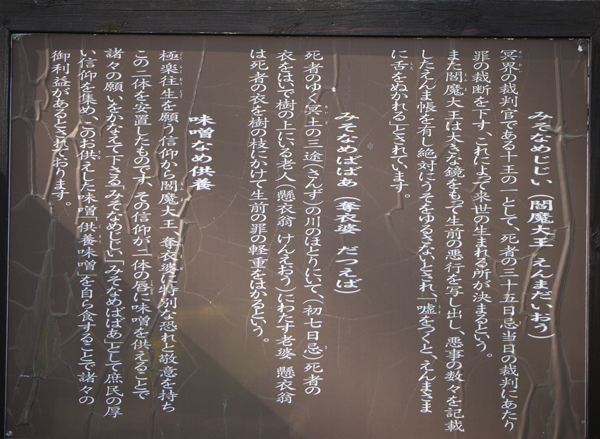 みそなめじじい（閻魔大王 えんまだいおう）
冥界の裁判官である十王の一として、死者の三十五日忌当日の裁判にあたり
罪の裁断を下す、これによって来世の生まれる所が決まるという。
また閻魔大王は大きな鏡をもって生前の悪行を写し出し、悪事の数々を記載
したえんま帳を有し絶対にうそをゆるさないとされ、「嘘をつくと、えんまさま
に舌をぬかれる」とされています。
みそなめばばあ（奪衣婆 だつえば）
死者のゆく冥土の三途（さんず）の川のほとりにいて、（初七日忌）死者の
衣をはいで樹の上にいる老人（懸衣翁 けんえおう）にわたす老婆 懸衣翁
は死者の衣を樹の枝にかけて生前の罪の軽重をはかるという。
味噌なめ供養
極楽往生を願う信仰から閻魔大王 奪衣婆に特別な恐れと敬意を持ち
この二体を安置したものです、その信仰が二体の唇に味噌を供えることで
諸々の願いをかなえて下さる「みそなめじじい」「みそなめばばあ」として庶民の厚
い信仰を集め、このお供えした味噌「供養味噌」を自ら食することで諸々の
御利益があるとされております。